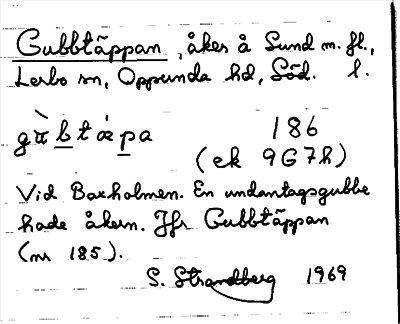 Gubbtäppan, åker å Sund m. fl.,
Lerbo sn, Oppunda hd, Söd. l.
gu̇̀btæpa 186
(ek 9G7h)
Vid Boxholmen. En undantagsgubbe
hade åkern. Jfr Gubbtäppan
(nr 185).
S. Strandberg 1969